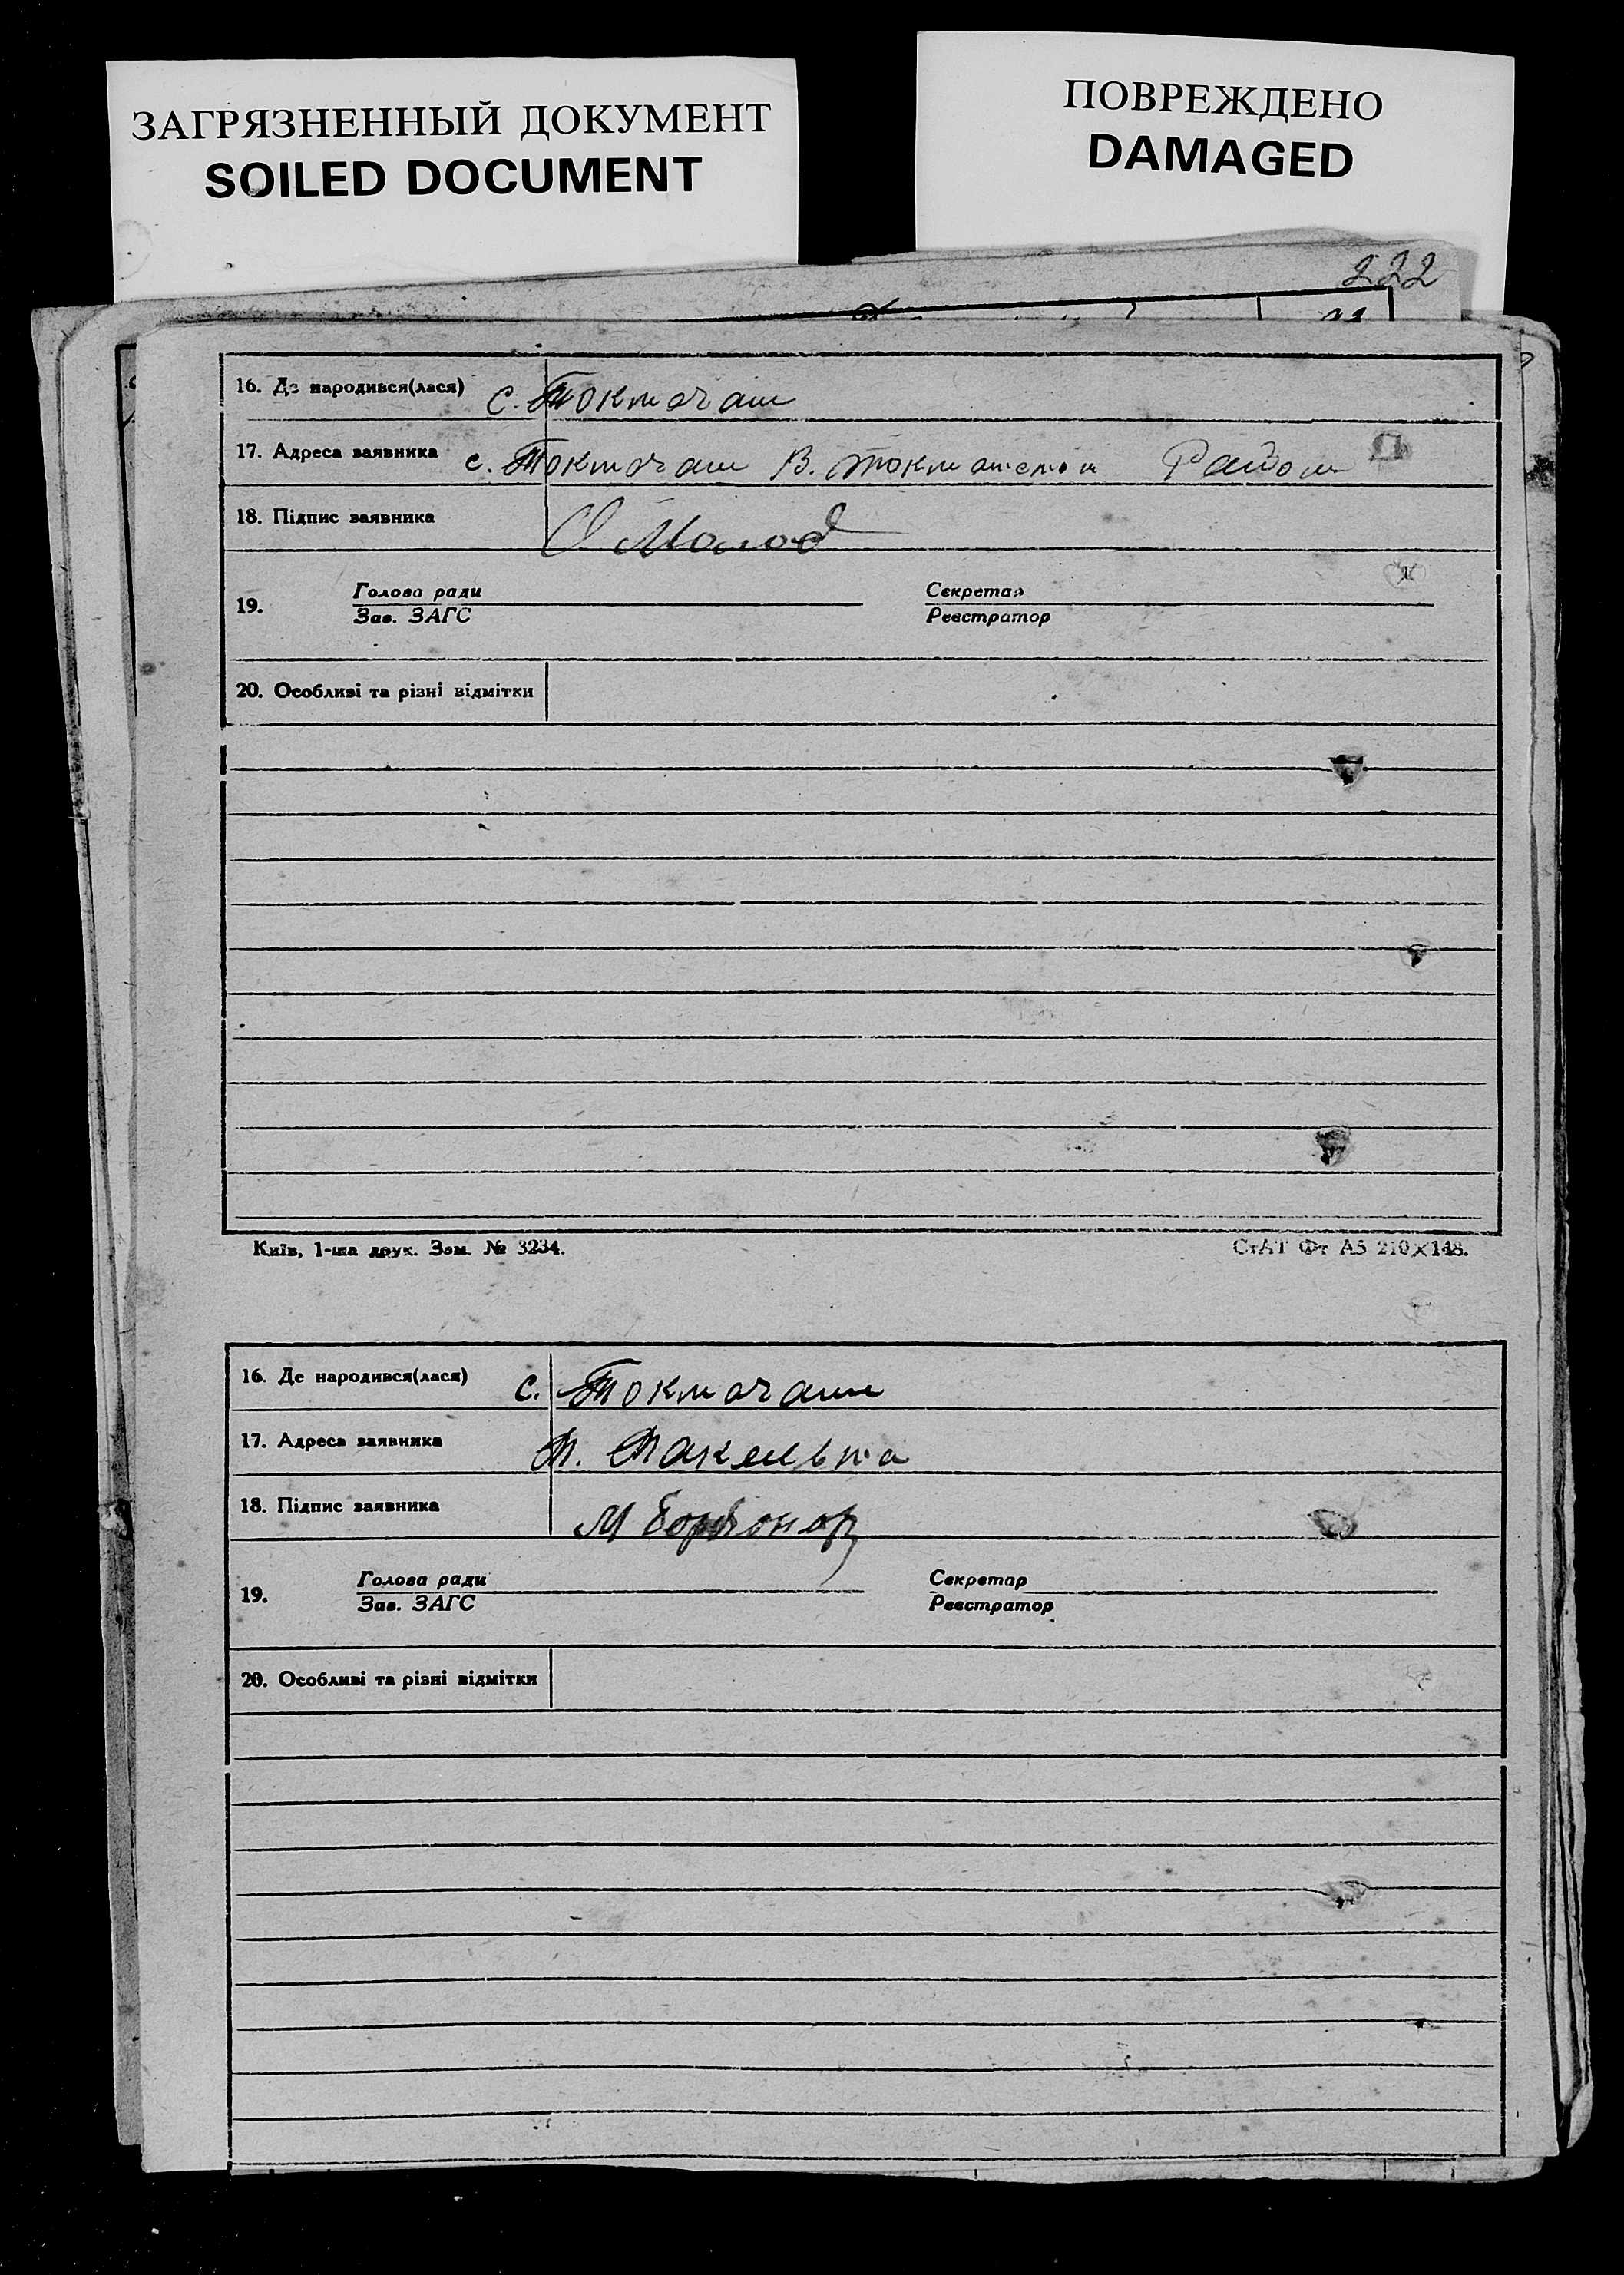 ЗАГРЯЗНЕННЫЙ ДОКУМЕНТ
SOILED DOCUMENT
ПОВРЕЖДЕНО
DAMAGED
222
16. Де народився(лася) с. Токмачани
17. Адреса заявника с. Токмачани В.
18. Підпис заявника
19. Голова ради Секретар
Зав. ЗАГС Реєстратор
20. Особливі та різні відмітки
Київ, 1-ша друк. Зам. № 3234.
СтАТ Фт А5 210×148.
16. Де народився(лася) с. Токмачани
17. Адреса заявника
18. Підпис заявника М
19. Голова ради Секретар
Зав. ЗАГС Реєстратор
20. Особливі та різні відмітки